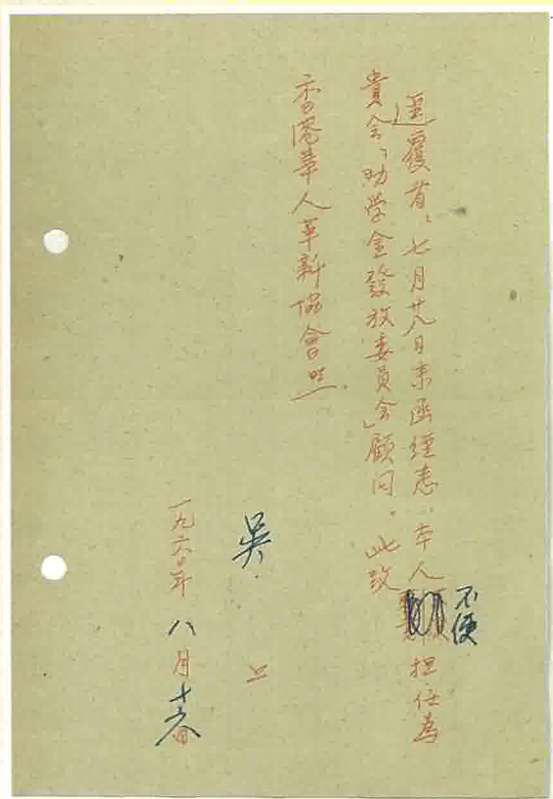 逕覆者：七月廿八日来函經悉，本人不便担任為
貴会「助学金發放委員会」顧问。此致
香港華人革新協會
吴 上
一九六〇年八月十日